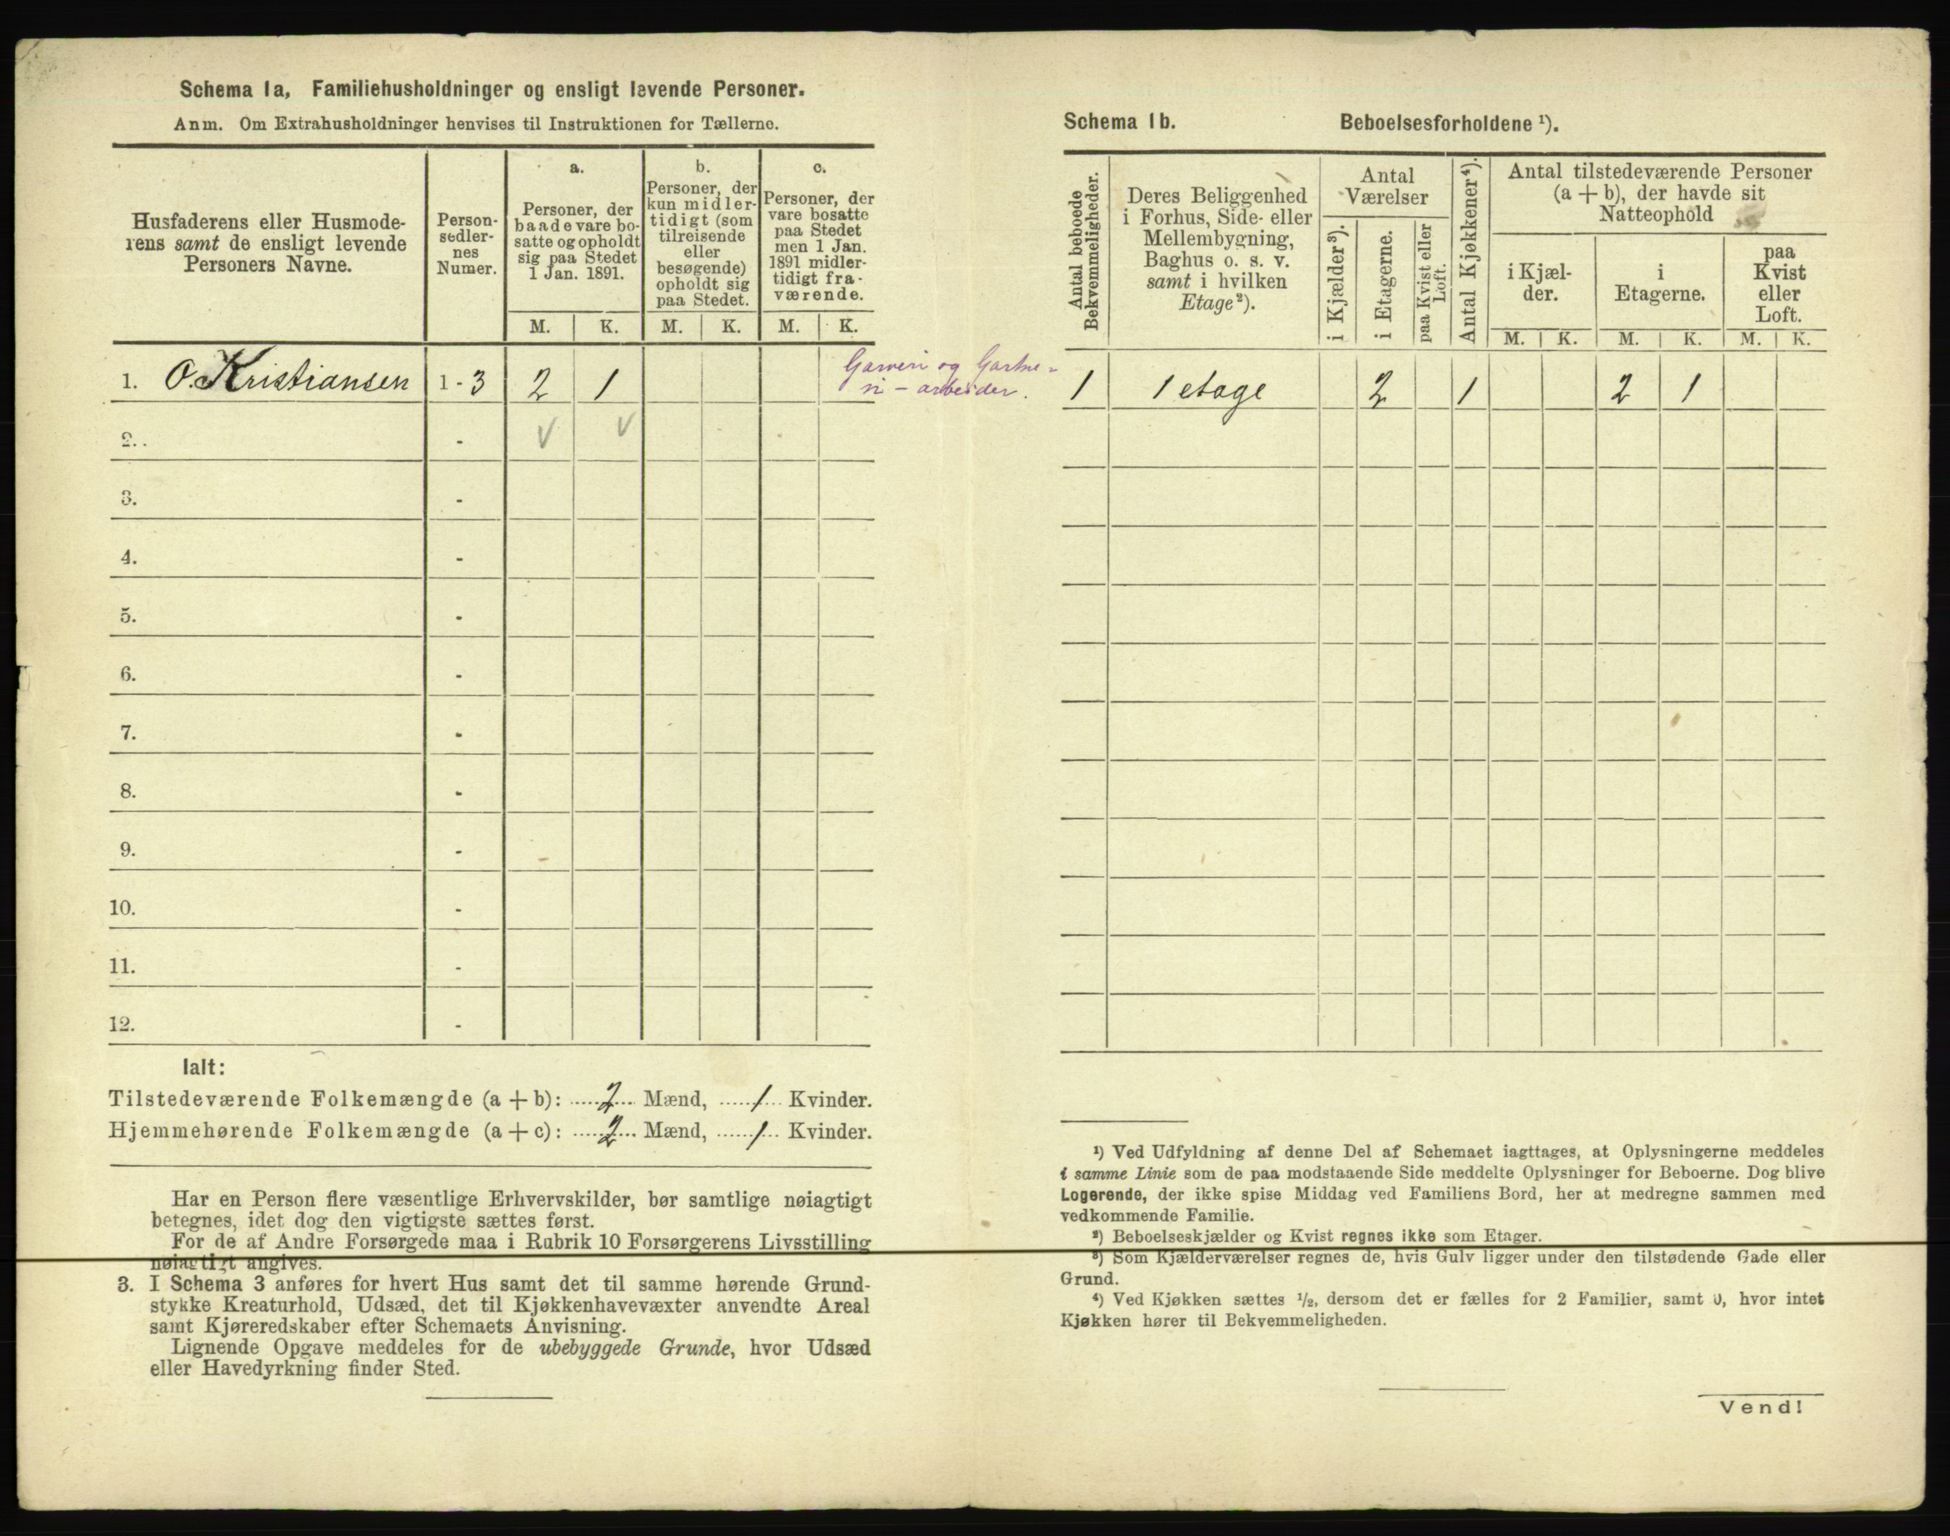 Schema 1a, Familiehusholdninger og ensligt levende Personer.
Anm. Om Extrahusholdninger henvises til Instruktionen for Tællerne.
Husfaderens eller Husmode-
rens samt de ensligt levende
Personers Navne.
Person-
sedler-
nes
Numer.
a.
Personer, der
baade vare bo-
satte og opholdt
sig paa Stedet
1 Jan. 1891.
b.
Personer, der
kun midler-
tidigt (som
tilreisende
eller
besøgende)
opholdt sig
paa Stedet.
c.
Personer, der
vare bosatte
paa Stedet
men 1 Jan.
1891 midler-
tidigt fra-
værende.
M. K. M. K. M. K.
1. O. Kristiansen 1 - 3 2 1
Garveri og Gartne-
ri - arbeider.
2. - V V
3. -
4. -
5. -
6. -
7. -
8. -
9. -
10. -
11. -
12. -
Ialt:
Tilstedeværende Folkemængde (a + b): 2 Mænd, 1 Kvinder.
Hjemmehørende Folkemængde (a + c): 2 Mænd, 1 Kvinder.
Har en Person flere væsentlige Erhvervskilder, bør samtlige nøiagtigt
betegnes, idet dog den vigtigste sættes først.
For de af Andre Forsørgede maa i Rubrik 10 Forsørgerens Livsstilling
nøiagtigt angives.
3. I Schema 3 anføres for hvert Hus samt det til samme hørende Grund-
stykke Kreaturhold, Udsæd, det til Kjøkkenhavevæxter anvendte Areal
samt Kjøreredskaber efter Schemaets Anvisning.
Lignende Opgave meddeles for de ubebyggede Grunde, hvor Udsæd
eller Havedyrkning finder Sted.
Schema 1b. Beboelsesforholdene ¹).
Antal beboede
Bekvemmeligheder.
Deres Beliggenhed
i Forhus, Side- eller
Mellembygning,
Baghus o. s. v.
samt i hvilken
Etage²).
Antal
Værelser
i Kjælder³).
i Etagerne.
paa Kvist eller
Loft.
Antal Kjøkkener⁴).
Antal tilstedeværende Personer
(a + b), der havde sit
Natteophold
i Kjæl-
der.
i
Etagerne.
paa
Kvist
eller
Loft.
M. K. M. K. M. K.
1 1 etage 2 1 2 1
¹) Ved Udfyldning af denne Del af Schemaet iagttages, at Oplysningerne meddeles
i samme Linie som de paa modstaaende Side meddelte Oplysninger for Beboerne. Dog blive
Logerende, der ikke spise Middag ved Familiens Bord, her at medregne sammen med
vedkommende Familie.
²) Beboelseskjælder og Kvist regnes ikke som Etager.
³) Som Kjælderværelser regnes de, hvis Gulv ligger under den tilstødende Gade eller
Grund.
⁴) Ved Kjøkken sættes ½, dersom det er fælles for 2 Familier, samt 0, hvor intet
Kjøkken hører til Bekvemmeligheden.
Vend!